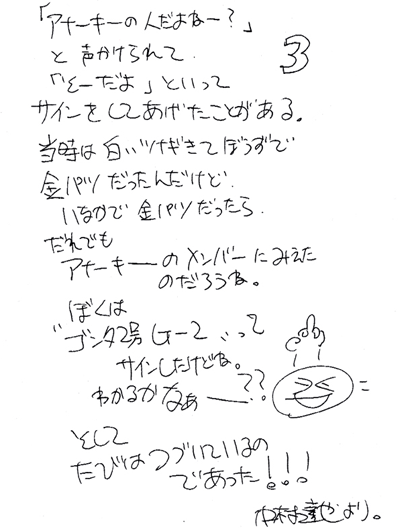 「アナーキーの人だよねー？」
3
と声かけられて
「そーだよ」といって
サインをしてあげたことがある。
当時は白いツナギきてぼうずで
金パツだったんだけど
いなかで金パツだったら
だれでも
アナーキーのメンバーにみえた
のだろうね。
ぼくは
"ゴンタ2号G-2"って
サインしたけどね。
わかるかなぁー??
そして
たびはつづいているの
であった!!!
より。